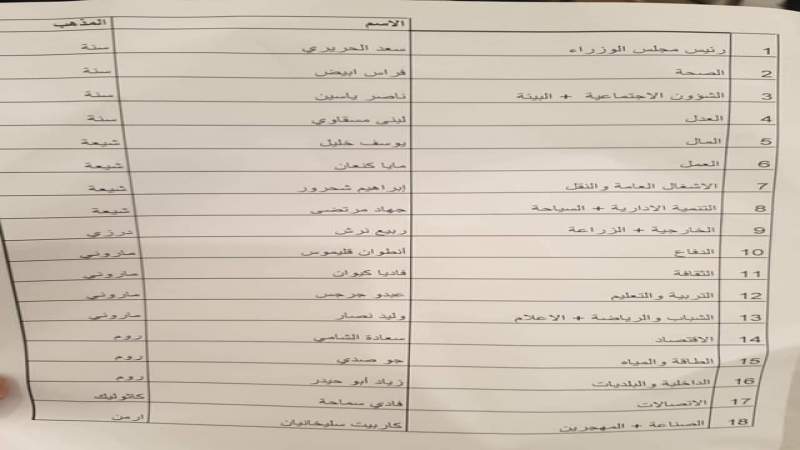 الاسم المذهب
1 رئيس مجلس الوزراء سعد الحريري سنة
2 الصحة فراس ابيض سنة
3 الشؤون الاجتماعية + البيئة ناصر ياسين سنة
4 العدل لبنى مسقاوي سنة
5 المال يوسف خليل شيعة
6 العمل مايا كنعان شيعة
7 الاشغال العامة والنقل إبراهيم شحرور شيعة
8 التنمية الادارية + السياحة جهاد مرتضى شيعة
9 الخارجية + الزراعة ربيع نرش درزي
10 الدفاع انطوان قليموس ماروني
11 الثقافة فاديا كيوان ماروني
12 التربية والتعليم عبدو جرجس ماروني
13 الشباب والرياضة + الاعلام وليد نصار ماروني
14 الاقتصاد سعادة الشامي روم
15 الطاقة والمياه جو صدي روم
16 الداخلية والبلديات زياد ابو حيدر روم
17 الاتصالات فادي سماحة كاثوليك
18 الصناعة + المهجرين كاربيت سليخانيان ارمن